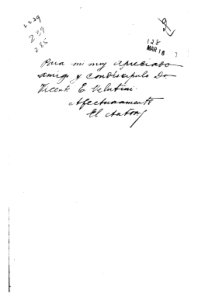 2239
239
225
128
MAR 18
Para mi muy apreciado
amigo y condiscípulo Do
Vicente E. Velutini
Afectuosamente
El Autor